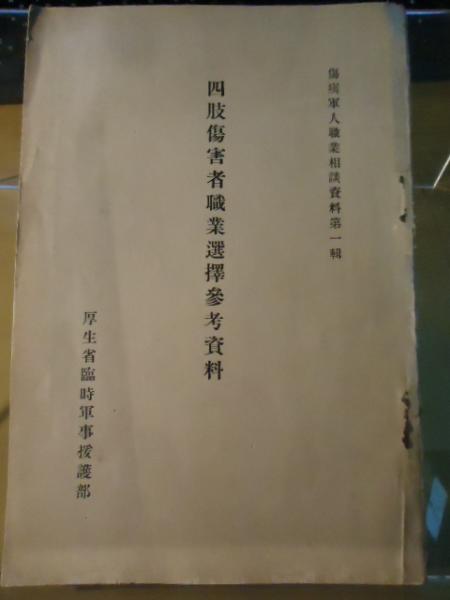 傷痍軍人職業相談資料第一輯
四肢傷害者職業選擇參考資料
厚生省臨時軍事援護部